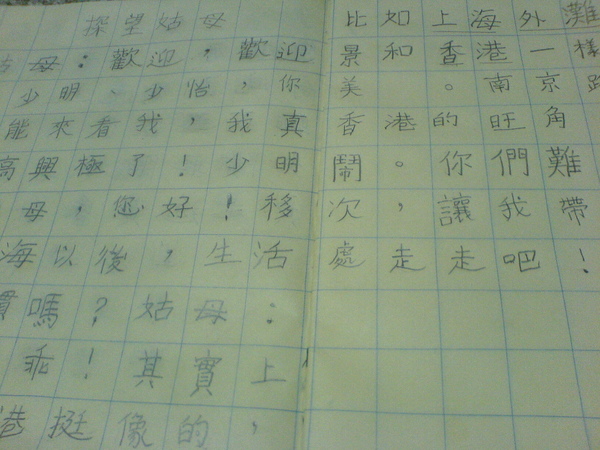 探望姑母
姑母：歡迎，歡迎
少明、少怡，你
能來看我，我真
高興極了！少明
母，您好！移
海以後，生活
慣嗎？姑母：
乖！其實上
港挺像的，
比如上海外灘
景和香港一樣
美。南京路
香港的旺角
鬧。你們難
次，讓我帶
處走走吧！